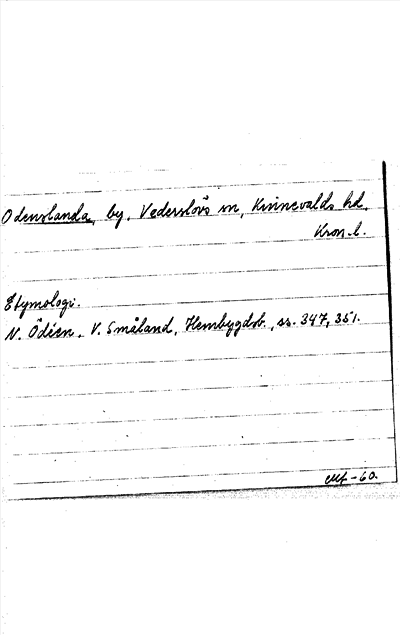 Odenslanda, by, Vederslövs sn, Kinnevalds hd.
Kron. l.
Etymologi.
N. Ödéen, V. Småland, Hembygdsb., ss. 347, 351.
-60.